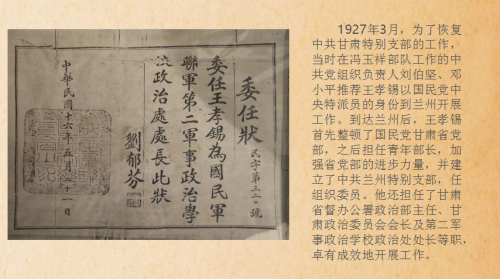 委任狀
民字第三二〇號
委任王孝錫為國民軍
聯軍第二軍事政治學
校政治處處長此狀
劉郁芬
中華民國十六年五月二十一日
1927年3月，为了恢复
中共甘肃特别支部的工作，
当时在冯玉祥部队工作的中
共党组织负责人刘伯坚、邓
小平推荐王孝锡以国民党中
央特派员的身份到兰州开展
工作。到达兰州后，王孝锡
首先整顿了国民党甘肃省党
部，之后担任青年部长，加
强省党部的进步力量，并建
立了中共兰州特别支部，任
组织委员。他还担任了甘肃
省督办公署政治部主任、甘
肃政治委员会会长及第二军
事政治学校政治处处长等职，
卓有成效地开展工作。